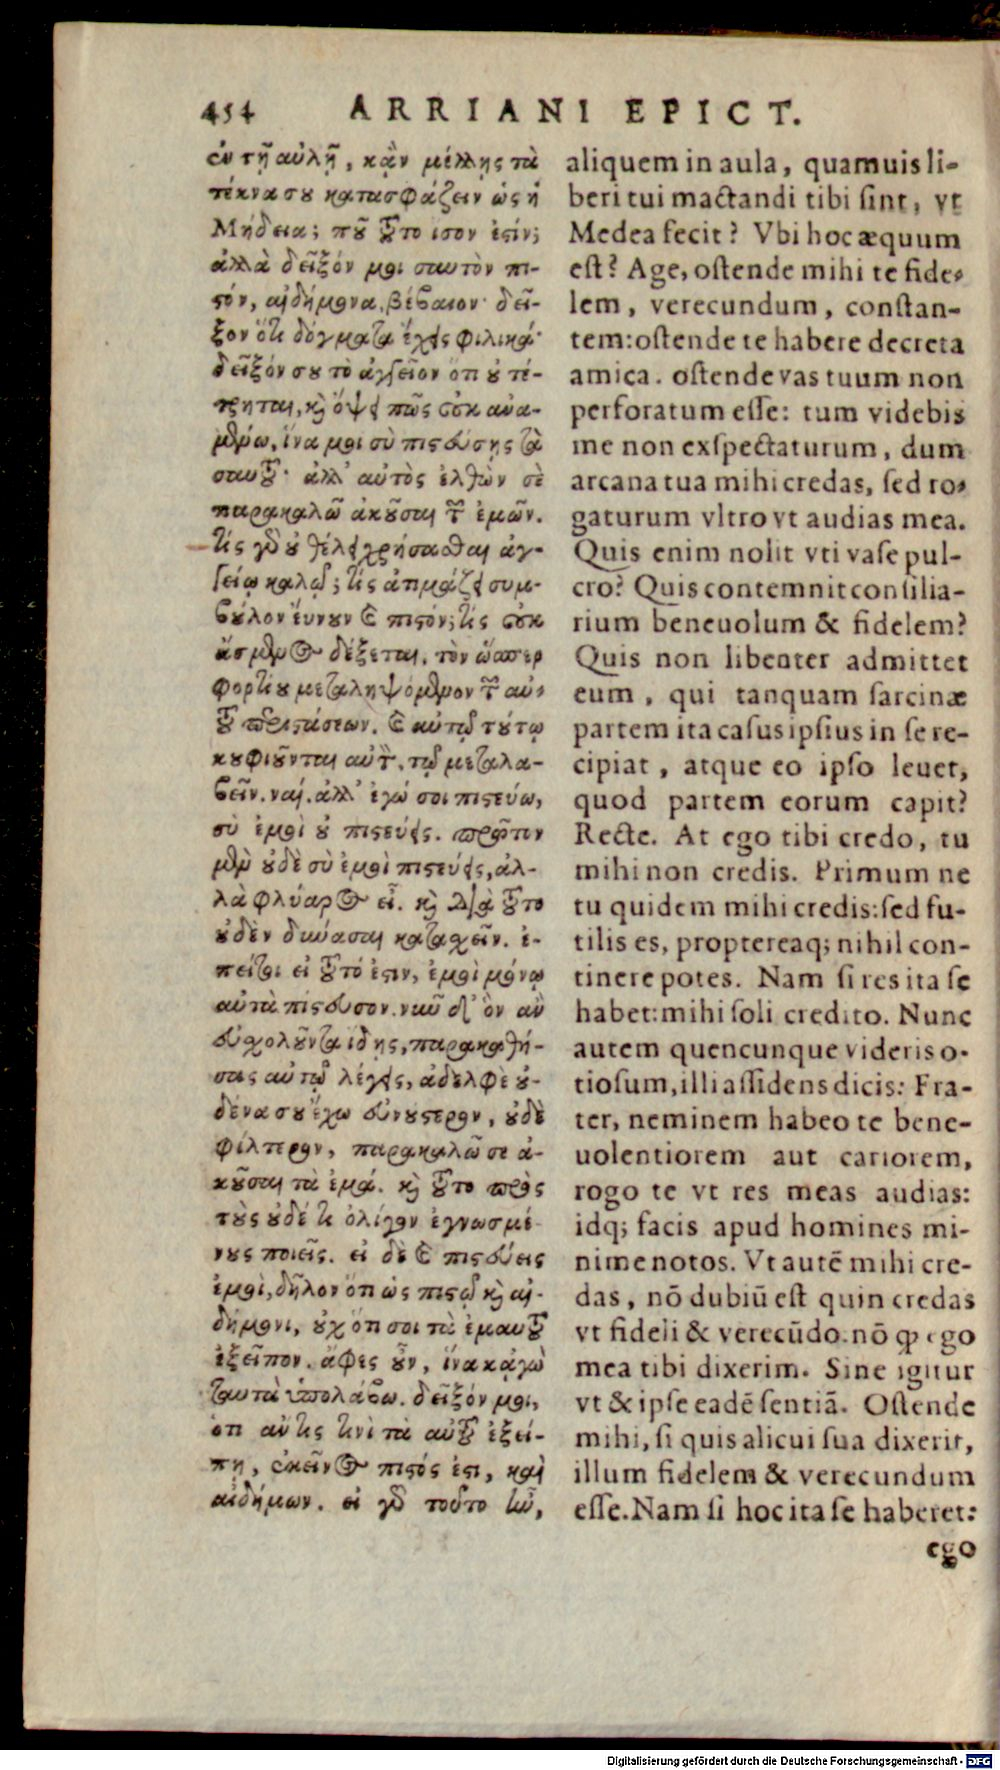 454 ARRIANI EPICT.
ἐν τῇ αὐλῇ, κἂν μέλλῃς τὰ
τέκνα σου κατασφάζειν ὡς ἡ
Μήδεια; ποῦ τοῦτο ἴσον ἐστίν;
ἀλλὰ δεῖξόν μοι σαυτὸν πι-
στόν, αἰδήμονα, βέβαιον· δεῖ-
ξον ὅτι δόγματα ἔχεις φιλικά·
δεῖξόν σου τὸ ἀγγεῖον ὅτι οὐ τέ-
τρηται, καὶ ὄψει πῶς οὐκ ἀνα-
μένω, ἵνα μοι σὺ πιστεύσῃς τὰ
σαυτοῦ· ἀλλ' αὐτὸς ἐλθὼν σὲ
παρακαλῶ ἀκοῦσαι τῶν ἐμῶν.
τίς γὰρ οὐ θέλει χρήσασθαι ἀγ-
γείῳ καλῷ; τίς ἀτιμάζει συμ-
βουλον εὔνουν καὶ πιστόν; τίς οὐκ
ἄσμενος δέξεται, τὸν ὥσπερ
φορτίου μεταληψόμενον τῶν αὐ-
τοῦ περιστάσεων, καὶ αὐτῷ τούτῳ
κουφιοῦνται αὐτὸν, τῷ μεταλα-
βεῖν. ναί. ἀλλ' ἐγώ σοι πιστεύω,
σὺ ἐμοὶ οὐ πιστεύεις. πρῶτον
μὲν οὐδὲ σὺ ἐμοὶ πιστεύεις, ἀλ-
λὰ φλύαρος εἶ. καὶ διὰ τοῦτο
οὐδὲν δύνασαι κατασχεῖν. ἐ-
πείτοι εἰ τοῦτό ἐστιν, ἐμοὶ μόνῳ
αὐτὰ πίστευσον. νῦν δ' ὃν ἂν
εὐσχολοῦντα ἴδῃς, παρακαθί-
σας αὐτῷ λέγεις, ἀδελφὲ οὐ-
δένα σου ἔχω εὐνούστερον, οὐδὲ
φίλτερον, παρακαλῶ σε ἀ-
κοῦσαι τὰ ἐμά. καὶ τοῦτο πρὸς
τοὺς οὐδέ τι ὀλίγον ἐγνωσμέ-
νους ποιεῖς. εἰ δὲ καὶ πιστεύεις
ἐμοὶ, δῆλον ὅτι ὡς πιστῷ καὶ αἰ-
δήμονι, οὐχ ὅτι σοι τὰ ἐμαυτοῦ
ἐξεῖπον. ἄφες οὖν, ἵνα κἀγὼ
ταυτὰ ὑπολάβω. δεῖξόν μοι,
ὅτι ἄν τις τινὶ τὰ αὑτοῦ ἐξεί-
πῃ, ἐκεῖνος πιστός ἐστι, καὶ
αἰδήμων. εἰ γὰρ τοῦτο ἦν,
aliquem in aula, quamuis li-
beri tui mactandi tibi sint, vt
Medea fecit? Vbi hoc æquum
est? Age, ostende mihi te fide-
lem, verecundum, constan-
tem: ostende te habere decreta
amica. ostende vas tuum non
perforatum esse: tum videbis
me non exspectaturum, dum
arcana tua mihi credas, sed ro-
gaturum vltro vt audias mea.
Quis enim nolit vti vase pul-
cro? Quis contemnit consilia-
rium beneuolum & fidelem?
Quis non libenter admittet
eum, qui tanquam sarcinæ
partem ita casus ipsius in se re-
cipiat, atque eo ipso leuet,
quod partem eorum capit?
Recte. At ego tibi credo, tu
mihi non credis. Primum ne
tu quidem mihi credis: sed fu-
tilis es, proptereaq; nihil con-
tinere potes. Nam si res ita se
habet: mihi soli credito. Nunc
autem quencunque videris o-
tiosum, illi assidens dicis: Fra-
ter, neminem habeo te bene-
uolentiorem aut cariorem,
rogo te vt res meas audias:
idq; facis apud homines mi-
nime notos. Vt autẽ mihi cre-
das, nõ dubiũ est quin credas
vt fideli & verecũdo. nõ ꝙ ego
mea tibi dixerim. Sine igitur
vt & ipse eadẽ sentiã. Ostende
mihi, si quis alicui sua dixerit,
illum fidelem & verecundum
esse. Nam si hoc ita se haberet:
ego
Digitalisierung gefördert durch die Deutsche Forschungsgemeinschaft - DFG